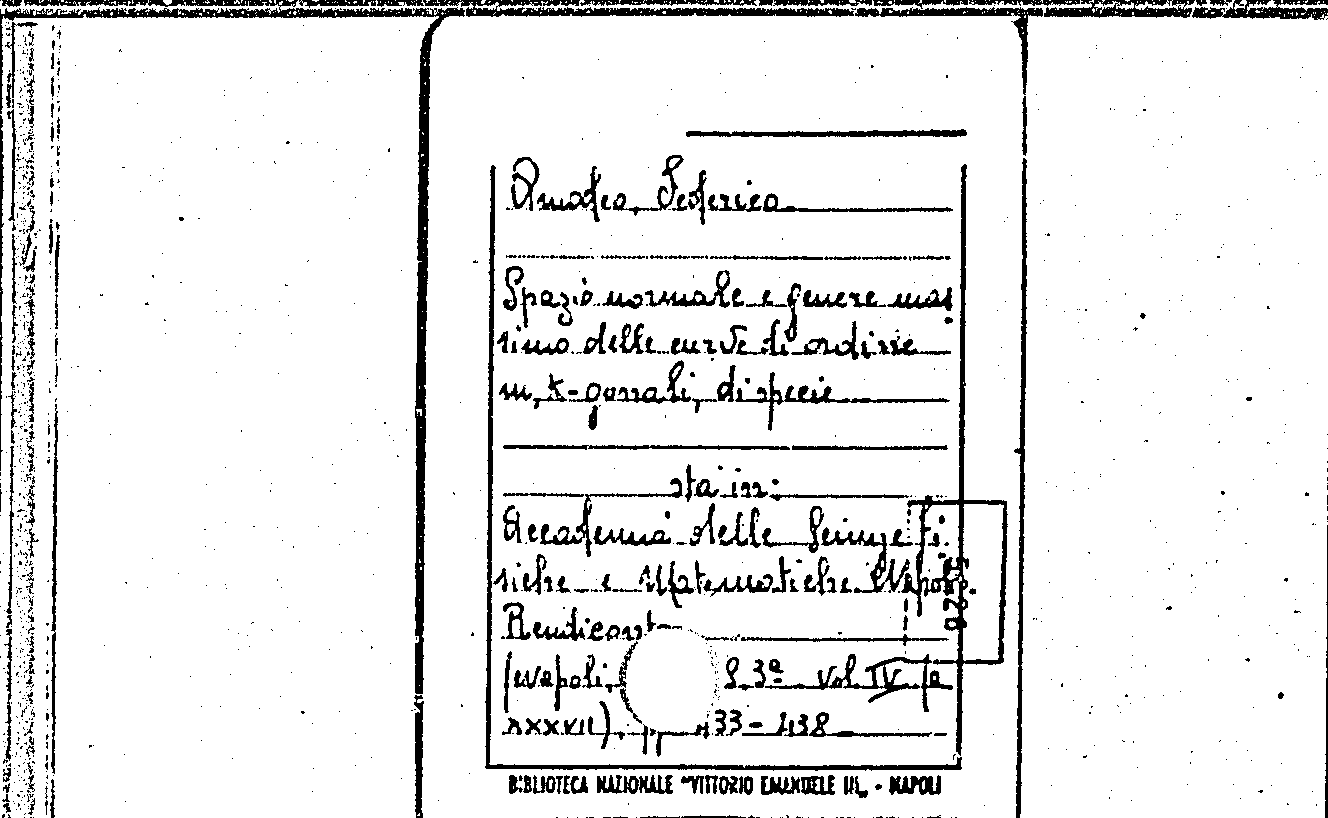 Amodeo, Federico
Spazio normale e genere mas
simo delle curve di ordine
m, k-gonali, di specie
sta in:
Accademia delle Scienze fi
siche e Matematiche Napoli.
Rendiconto
(Napoli, S. 3ª vol IV (a
XXXVII), pp 433-438
BIBLIOTECA NAZIONALE "VITTORIO EMANUELE III„ - NAPOLI